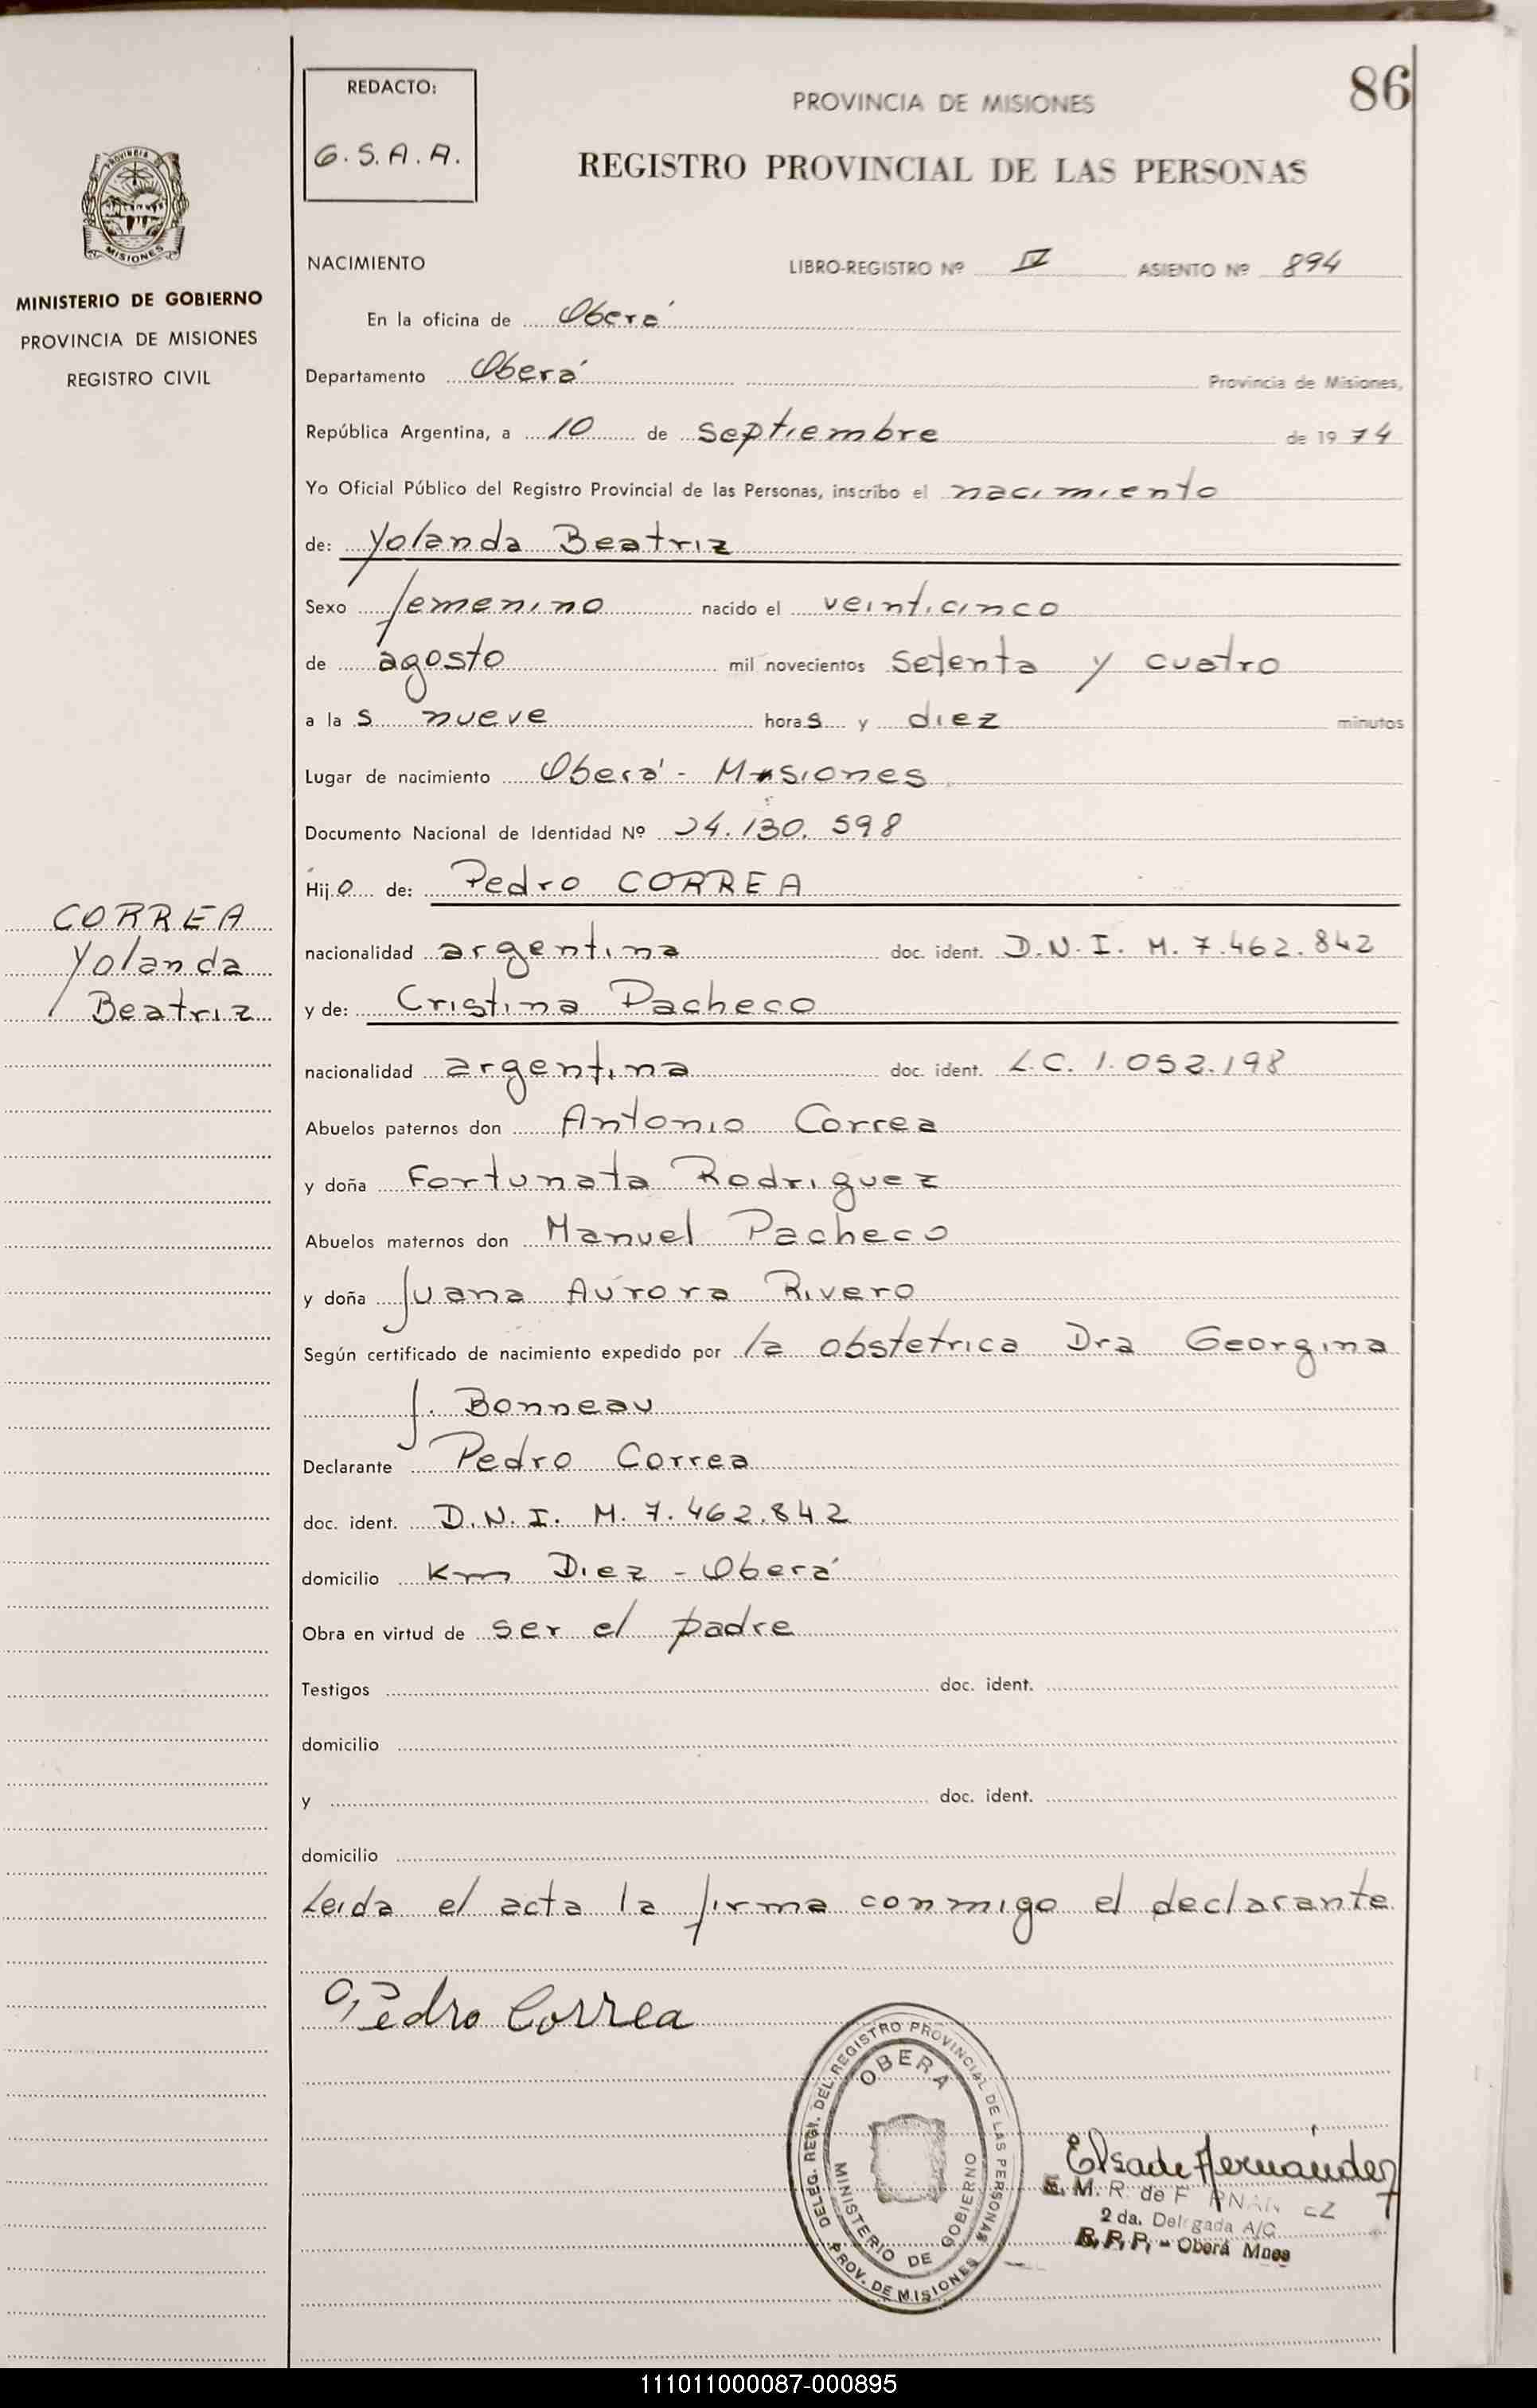 86
REDACTO:
G.S.A.A.
PROVINCIA DE MISIONES
REGISTRO PROVINCIAL DE LAS PERSONAS
PROVINCIA DE
MISIONES
MINISTERIO DE GOBIERNO
PROVINCIA DE MISIONES
REGISTRO CIVIL
NACIMIENTO LIBRO-REGISTRO Nº IV ASIENTO Nº 894
En la oficina de Oberá
Departamento Oberá Provincia de Misiones,
República Argentina, a 10 de septiembre de 1974
Yo Oficial Público del Registro Provincial de las Personas, inscribo el nacimiento
de: Yolanda Beatriz
Sexo femenino nacido el veinticinco
de agosto mil novecientos setenta y cuatro
a las nueve horas y diez minutos
Lugar de nacimiento Oberá - Misiones
Documento Nacional de Identidad Nº 24.130.598
Hijo de: Pedro CORREA
CORREA
Yolanda
Beatriz
nacionalidad argentina doc. ident. D.N.I. M. 7.462.842
y de: Cristina Pacheco
nacionalidad argentina doc. ident. L.C. 1.052.198
Abuelos paternos don Antonio Correa
y doña Fortunata Rodriguez
Abuelos maternos don Manuel Pacheco
y doña Juana Aurora Rivero
Según certificado de nacimiento expedido por la obstetrica Dra Georgina
J. Bonneau
Declarante Pedro Correa
doc. ident. D.N.I. M. 7.462.842
domicilio Km Diez - Oberá
Obra en virtud de ser el padre
Testigos doc. ident.
domicilio
y doc. ident.
domicilio
Leida el acta la firma conmigo el declarante
Pedro Correa
DELEG. REGI. DEL REGISTRO PROVINCIAL DE LAS PERSONAS
OBERA
MINISTERIO DE GOBIERNO
PROV. DE MISIONES
Elsa de Hernández
E. M. R. de
2 da. Delegada A/C
R.P.P. - Oberá Mnes
111011000087-000895